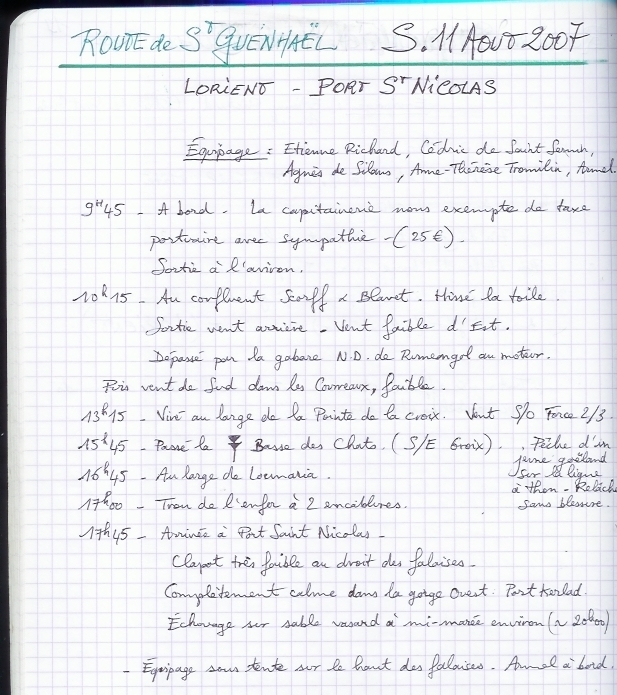 ROUTE de St GUÉNHAËL S. 11 AOUT 2007
LORIENT - PORT St NICOLAS
Équipage : Etienne Richard, Cédric de Saint Sernin,
Agnès de Silans, Anne-Thérèse Tromilin, Armel.
9H45 - A bord. La capitainerie nous exempte de taxe
portuaire avec sympathie - (25 €).
Sortie à l'aviron.
10h15 - Au confluent Scorff & Blavet. Hissé la toile.
Sortie vent arrière. Vent faible d'Est.
Dépassé par la gabare N.D. de Rumengol au moteur.
Puis vent de Sud dans les Coureaux, faible.
13h15 - Viré au large de la Pointe de la croix. Vent S/O Force 2/3.
15h45 - Passé la Basse des Chats. (S/E Groix).
16h45 - Au large de Locmaria.
17h00 - Trou de l'enfer à 2 encablures.
. Pêche d'un
jeune goéland
sur la ligne
à thon - Relâché
sans blessure.
17h45 - Arrivée à Port Saint Nicolas -
Clapot très faible au droit des falaises.
Complètement calme dans la gorge Ouest. Port Kerlad.
Échouage sur sable vasard à mi-marée environ (~ 20h00)
- Équipage sous tente sur le haut des falaises. Armel à bord.